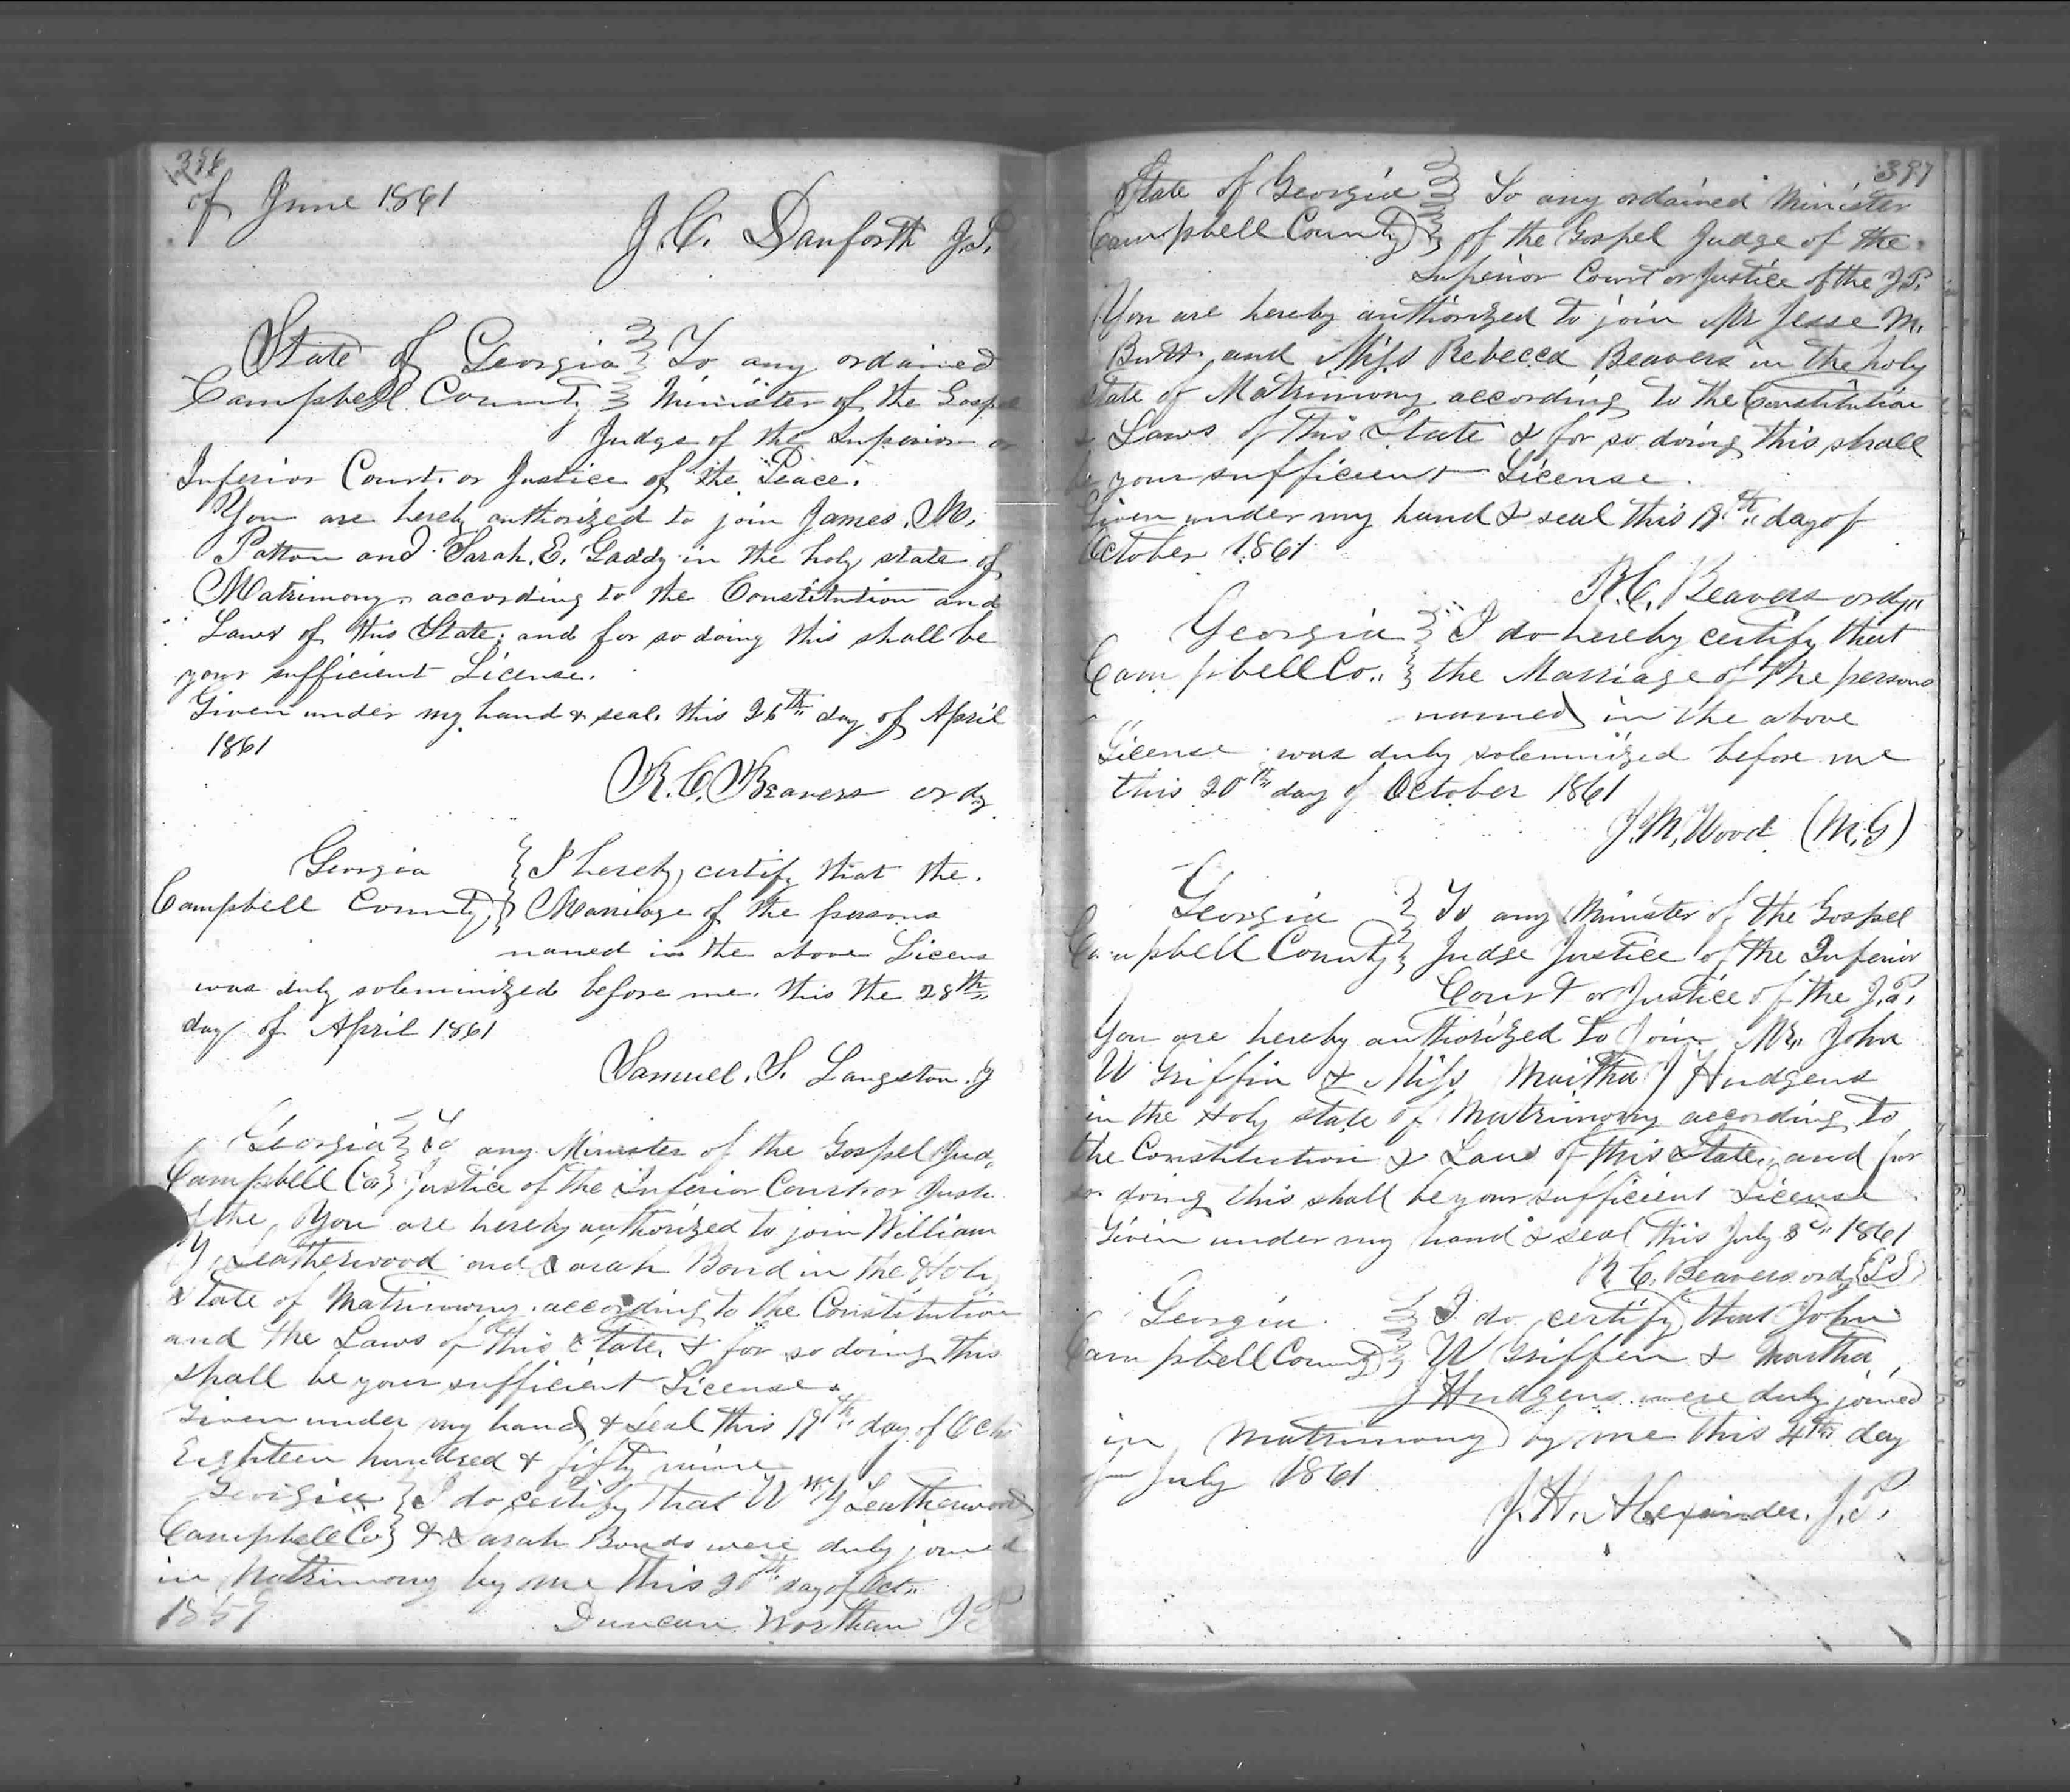 396
of June 1861
J. C. Danforth J.P.
State of Georgia } To any ordained
Campbell County } Minister of the Gospel
Judge of the Superior or
Inferior Court. or Justice of the Peace.
You are herely authorized to join James. M.
Patton and Sarah. E. Gaddy in the holy state of
Matrimony. according to the Constitution and
Laws of this State; and for so doing this shall be
your sufficient License.
Given under my hand & seal. this 26th day of April
1861
R. C. Beavers ordy
Georgia } I herely certify that the.
Campbell County, } Marriage of the persons
named in the above Licens
was duly soleminized before me. this the 28th
day of April 1861
Samuel. S. Langston. J
Georgia } To any Minister of the Gospel Jud.
Campbell Co } Justice of the Inferior Court or Just.
of the, You are hereby authorized to join William
Y. Leatherwood and Sarah Bond in the Holy
State of Matrimony. according to the Constitution
and the Laws of this State, & for so doing this
shall be your sufficient License.
Given under my hand & seal this 19th day of Oct
Eighteen hundred & fifty nine
Georgia } I do certify that Wm Y Leatherwood
Campbell Co } & Sarah Bonds were duly joined
in Matrimony by me this 20th day of Oct..
1859 Duncan Worthan J P
397
State of Georgia } To any ordained Minister
Campbell County } of the Gospel Judge of the
Superior Court or Justice of the J.P.
You are hereby authorized to join Mr Jesse M.
and Miss Rebecca Beavers in the holy
state of Matrimony according to the Constitution
& Laws of this State & for so doing this shall
be your sufficient License.
Given under my hand & seal this 19th day of
October 1861
R. C. Beavers ordy
Georgia } I do hereby certify that
Campbell Co.. } the Marriage of the persons
named in the above
License was duly solemnized before me
this 20th day of October 1861
J. M. Wood (M.G)
Georgia } To any Minister of the Gospel
Campbell County } Judge Justice of the Inferior
Court or Justice of the J.P.
You are hereby authorized to Join Mr. John
W Griffin & Miss Martha J Hudgens
in the Holy state of Matrimony according to
the Constitution & Laws of this State, and for
so doing this shall be your sufficient License
Given under my hand & seal this July 3d 1861
R C. Beavers ordy {LS}
Georgia. } I do certify that John
Campbell County } W Griffin & Martha
J Hudgens were duly joined
in Matrimony by me this 4th day
of July 1861
J. H. Alexander. J.P.